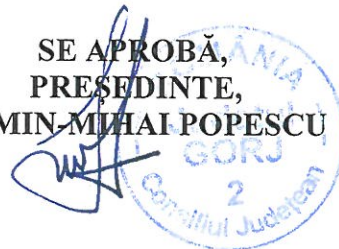 SE APROBĂ,
PREŞEDINTE,
MIN-MIHAI POPESCU
ROMÂNIA
Judeţul
GORJ
2
Consiliul Judeţean